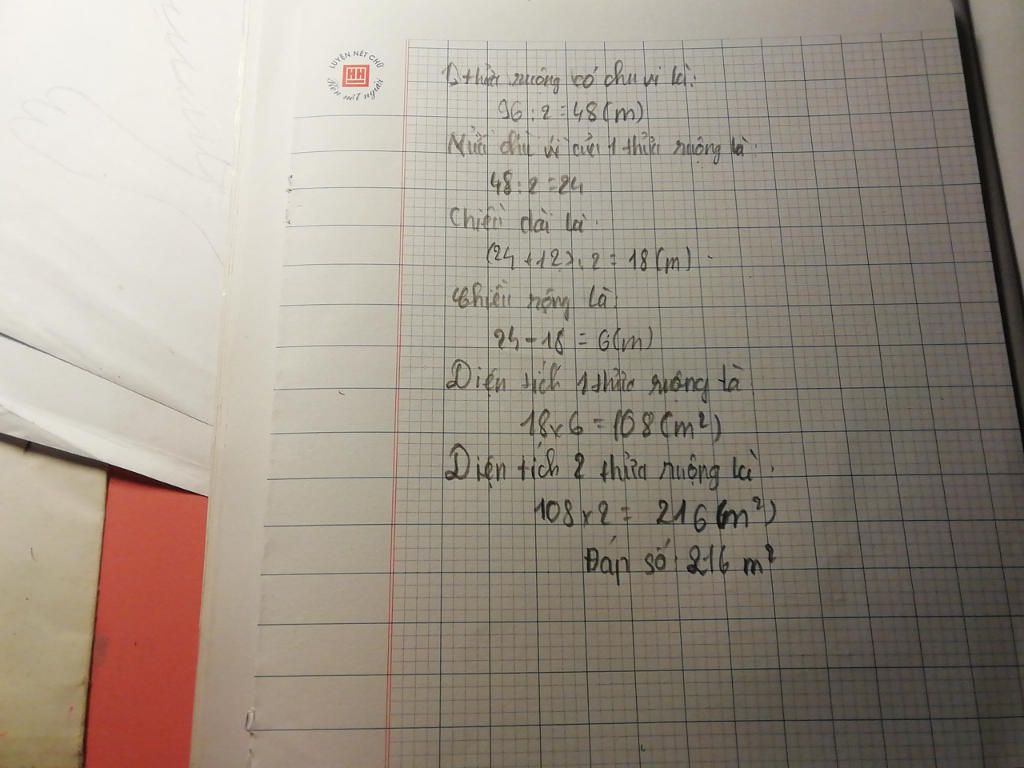 LUYỆN NÉT CHỮ
HH
Rèn nết người
1 thửa ruộng có chu vi là:
96 : 2 = 48 (m)
Nửa chu vi của 1 thửa ruộng là:
48 : 2 = 24
Chiều dài là:
(24 + 12) : 2 = 18 (m)
Chiều rộng là:
24 - 18 = 6 (m)
Diện tích 1 thửa ruộng là
18 x 6 = 108 (m²)
Diện tích 2 thửa ruộng là:
108 x 2 = 216 (m²)
Đáp số: 216 m²